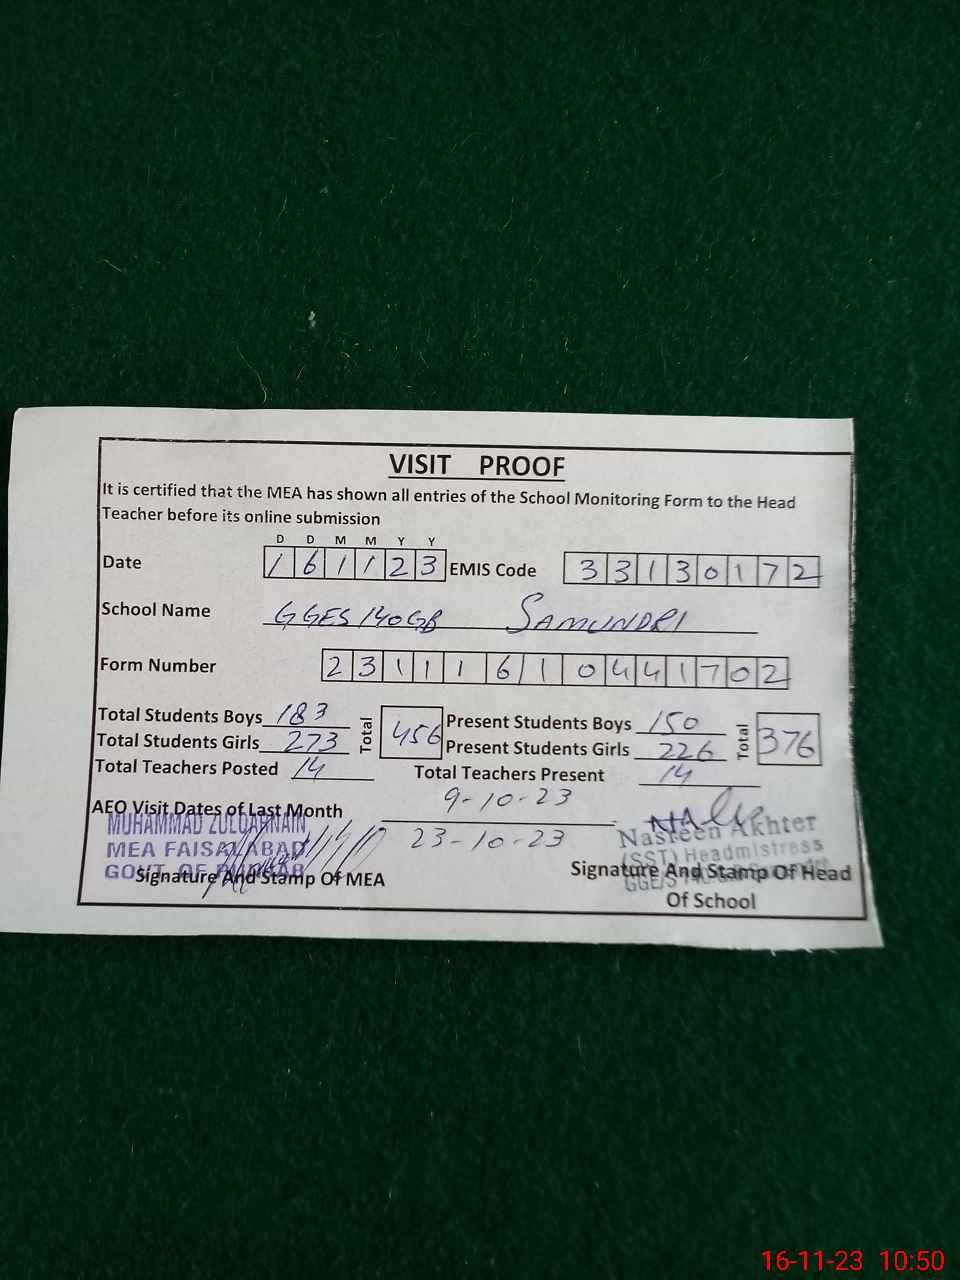 VISIT PROOF
It is certified that the MEA has shown all entries of the School Monitoring Form to the Head
Teacher before its online submission
D D M M Y Y
Date 1 6 1 1 2 3 EMIS Code 3 3 1 3 0 1 7 2
School Name GGES 140GB SAMUNDRI
Form Number 2 3 1 1 1 6 1 0 4 4 1 7 0 2
Total Students Boys 183 Total 456 Present Students Boys 150 Total 376
Total Students Girls 273 Present Students Girls 226
Total Teachers Posted 14 Total Teachers Present 14
AEO Visit Dates of Last Month 9-10-23
23-10-23
MUHAMMAD ZULQARNAIN
MEA FAISALABAD
GOVT. OF PUNJAB
Signature And Stamp Of MEA
Nasreen Akhter
(SST) Headmistress
GGE/S
Signature And Stamp Of Head
Of School
16-11-23 10:50